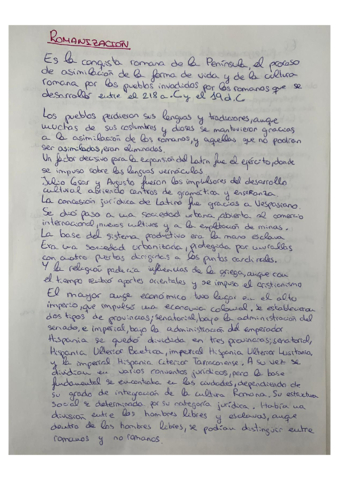 ROMANIZACIÓN
Es la conquista romana de la Península, el proceso
de asimilación de la forma de vida y de la cultura
romana por los pueblos invadidos por los romanos que se
desarrolla entre el 218 a.C y el 19 d.C
Los pueblos perdieron sus lenguas y tradiciones, auque
muchas de sus costumbres y dioses se mantuvieron gracias
a la asimilación de los romanos, y aquellas que no podían
ser asimiladas, eran eliminadas.
Un factor decisivo para la expansión del Latín fue el ejército, donde
se impuso sobre las lenguas vernáculas
Julio César y Augusto fueron los impulsores del desarrollo
cultural abriendo centros de gramática y enseñanza.
La concesión jurídica de Latino fue gracias a Vespasiano
Se dió paso a una sociedad urbana, abierta al comercio
internacional, nuevos cultivos y a la explotación de minas.
La base del sistema productivo era la mano esclava.
Era una sociedad urbanitaria, protegida por murallas
con cuatro puertas dirigidas a los puntos cardinales.
Y la religión padecía influencias de la griega, auque con
el tiempo recibió aportes orientales y se impuso el cristianismo
El mayor auge económico tuvo lugar en el alto
imperio, que impulsó una economía colonial, se establecieron
dos tipos de provincias; senatorial, bajo la administración del
senado, e imperial, bajo la administración del emperador
Hispania se quedó dividida en tres provincias; senatorial,
Hyspania Ulterior Baetica, imperial Hispania Ulterior Lusitania
y la imperial Hispania Citerior Tarraconense. A su vez se
dividían en varios conventos jurídicos, pero la base
fundamental se encontraba en las ciudades, dependiendo de
su grado de integración de la cultura Romana. Su estructura
social se determinaba por su categoría jurídica. Había una
división entre los hombres libres y esclavos, auque
dentro de los hombres libres, se podían distinguir entre
romanos y no romanos